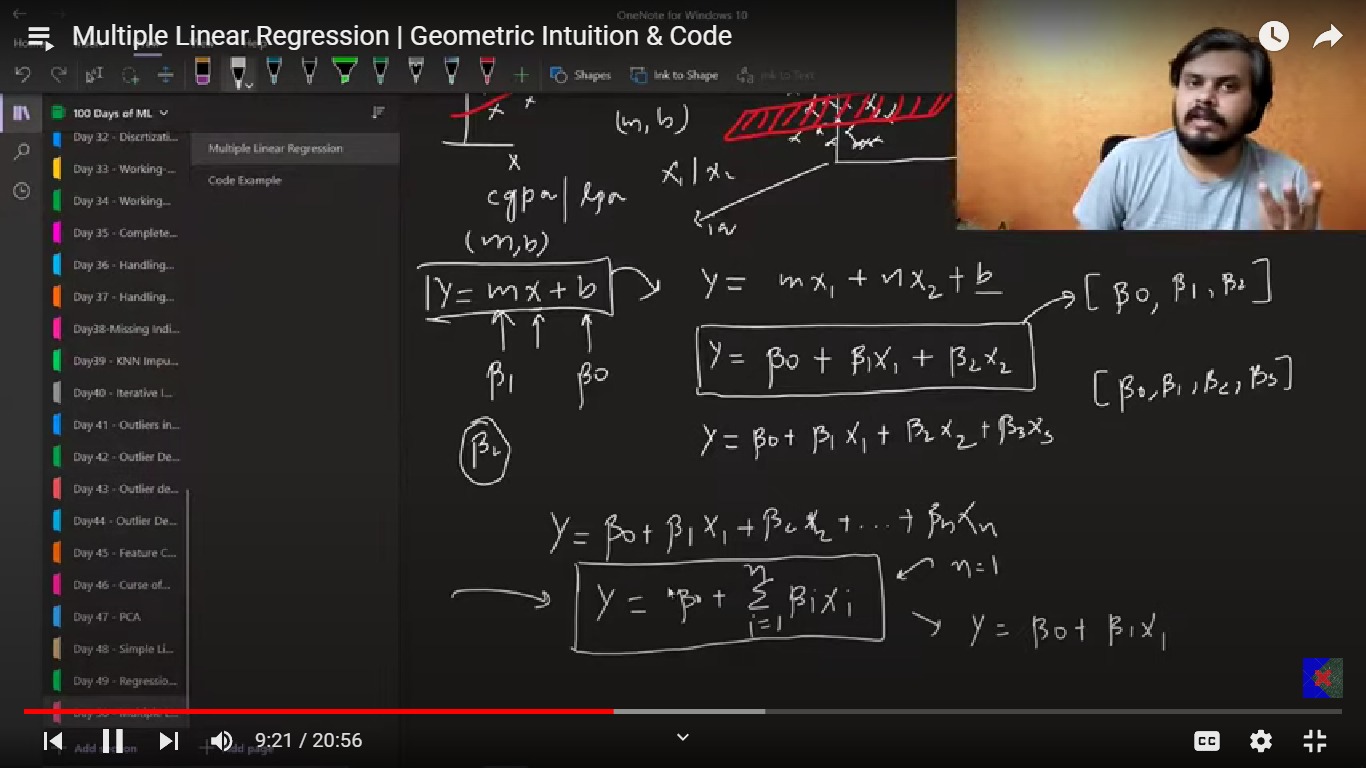 OneNote for Windows 10
Multiple Linear Regression | Geometric Intuition & Code
Shapes
Ink to Shape
Ink to Text
100 Days of ML
Day 32 - Discrtizati...
Day 33 - Working-...
Day 34 - Working...
Day 35 - Complete...
Day 36 - Handling...
Day 37 - Handling...
Day38-Missing Indi...
Day39 - KNN Impu...
Day40 - Iterative I...
Day 41 - Outliers in...
Day 42 - Outlier De...
Day 43 - Outlier de...
Day44 - Outlier De...
Day 45 - Feature C...
Day 46 - Curse of...
Day 47 - PCA
Day 48 - Simple Li...
Day 49 - Regressio...
Add section
Multiple Linear Regression
Code Example
Add page
x x
x
(m, b)
x₁ | x₂
cgpa | lpa
(m, b)
Y = mx + b
β₁ β0
β₂
Y = mx₁ + nx₂ + b
[β0, β₁, β₂]
Y = β0 + β₁x₁ + β₂x₂
[β0, β₁, β₂, β₃]
Y = β0 + β₁x₁ + β₂x₂ + β₃x₃
Y = β0 + β₁x₁ + β₂x₂ + ... + βnxn
Y = β0 + n Σ i=1 βixi
n=1
Y = β0 + β₁x₁
9:21 / 20:56
CC